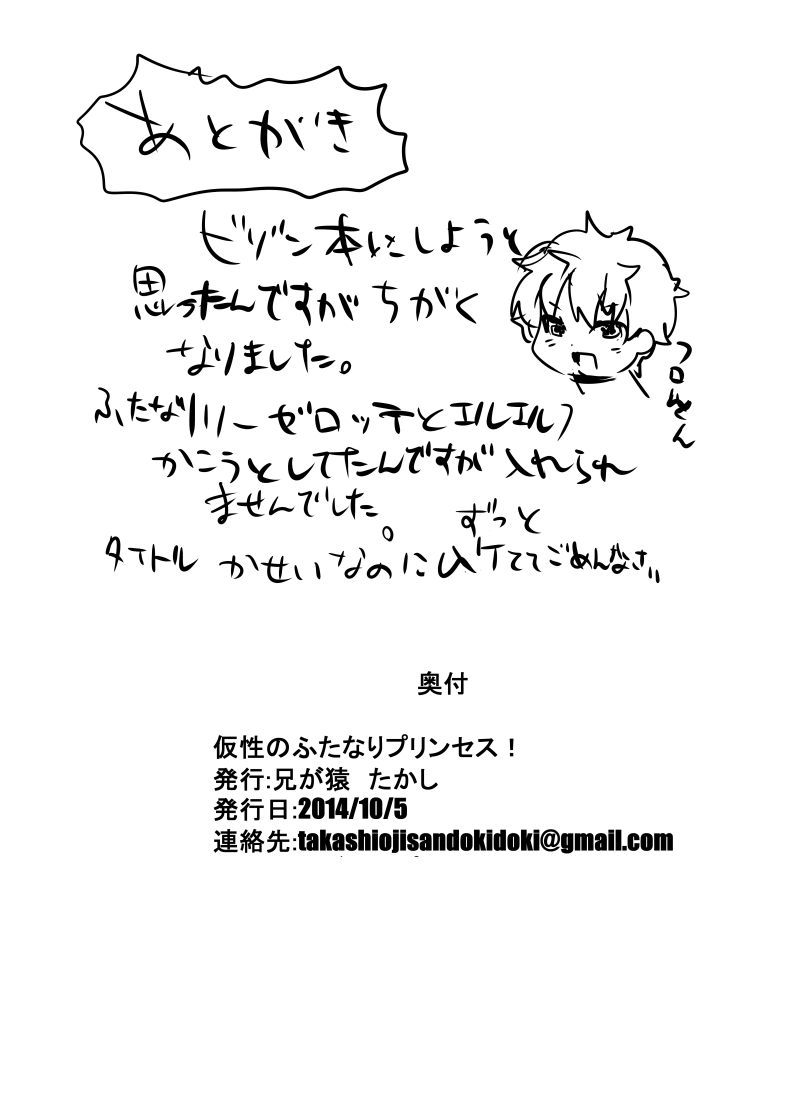 あとがき
ビゾン本にしようと
思ったんですが ちがく
なりました。
ふたなリリーゼロッテとエルエルフ
かこうとしてたんですが 入れられ
ませんでした。 ずっと
タイトル かせいなのに
ごめんなさい
奥付
仮性のふたなりプリンセス！
発行:兄が猿　たかし
発行日:2014/10/5
連絡先:takashiojisandokidoki@gmail.com